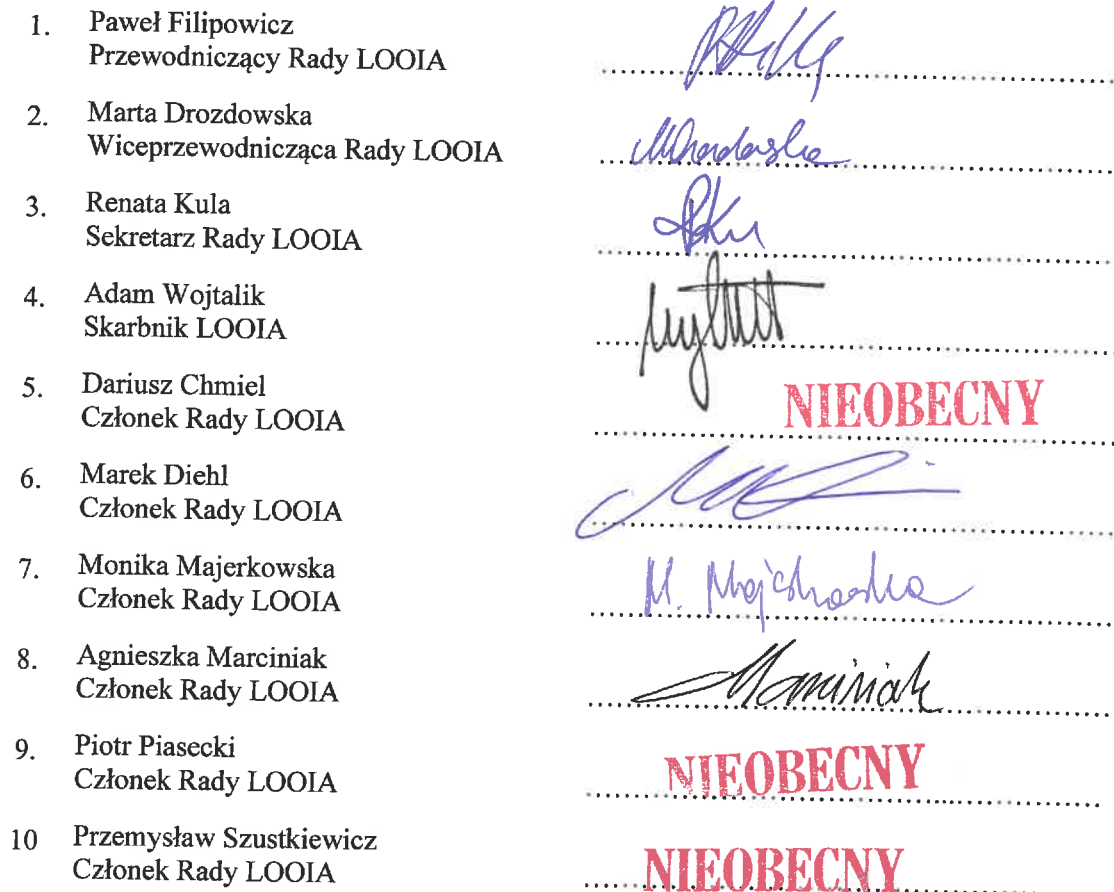 1. Paweł Filipowicz
Przewodniczący Rady LOOIA
2. Marta Drozdowska
Wiceprzewodnicząca Rady LOOIA
3. Renata Kula
Sekretarz Rady LOOIA
4. Adam Wojtalik
Skarbnik LOOIA
5. Dariusz Chmiel
Członek Rady LOOIA
NIEOBECNY
6. Marek Diehl
Członek Rady LOOIA
7. Monika Majerkowska
Członek Rady LOOIA
8. Agnieszka Marciniak
Członek Rady LOOIA
Marciniak
9. Piotr Piasecki
Członek Rady LOOIA
NIEOBECNY
10 Przemysław Szustkiewicz
Członek Rady LOOIA
NIEOBECNY